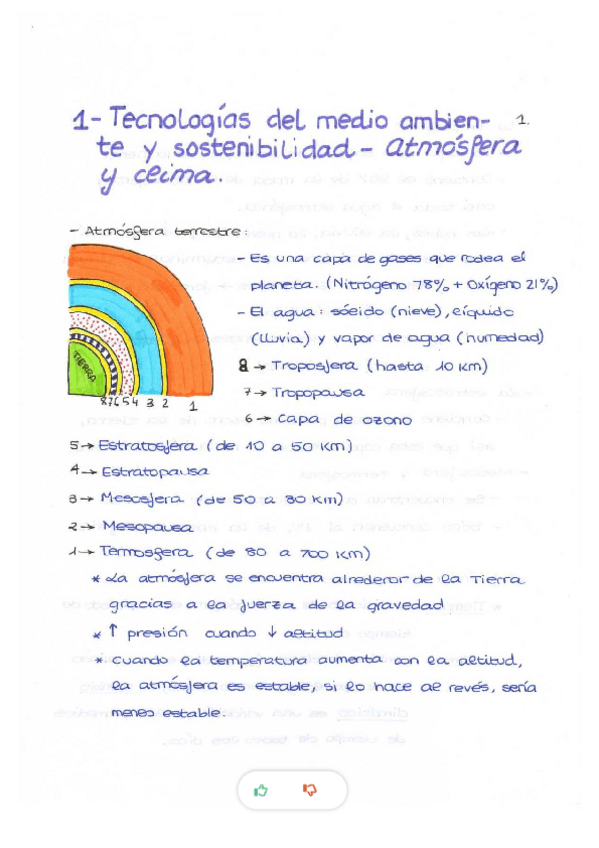 1- Tecnologías del medio ambien-
te y sostenibilidad - Atmósfera
y clima.
1.
- Atmósfera terrestre:
- Es una capa de gases que rodea el
planeta. (Nitrógeno 78% + Oxígeno 21%)
- El agua: sólido (nieve), líquido
(lluvia) y vapor de agua (humedad)
8 → Troposfera (hasta 10 km)
7 → Tropopausa
6 → Capa de ozono
TIERRA
8 7 6 5 4 3 2 1
5 → Estratosfera (de 10 a 50 km)
4 → Estratopausa
3 → Mesosfera (de 50 a 80 km)
2 → Mesopausa
1 → Termosfera (de 80 a 700 km)
* La atmósfera se encuentra alrededor de la Tierra
gracias a la fuerza de la gravedad
* ↑ presión cuando ↓ altitud
* cuando la temperatura aumenta con la altitud,
la atmósfera es estable, si lo hace al revés, sería
menos estable.